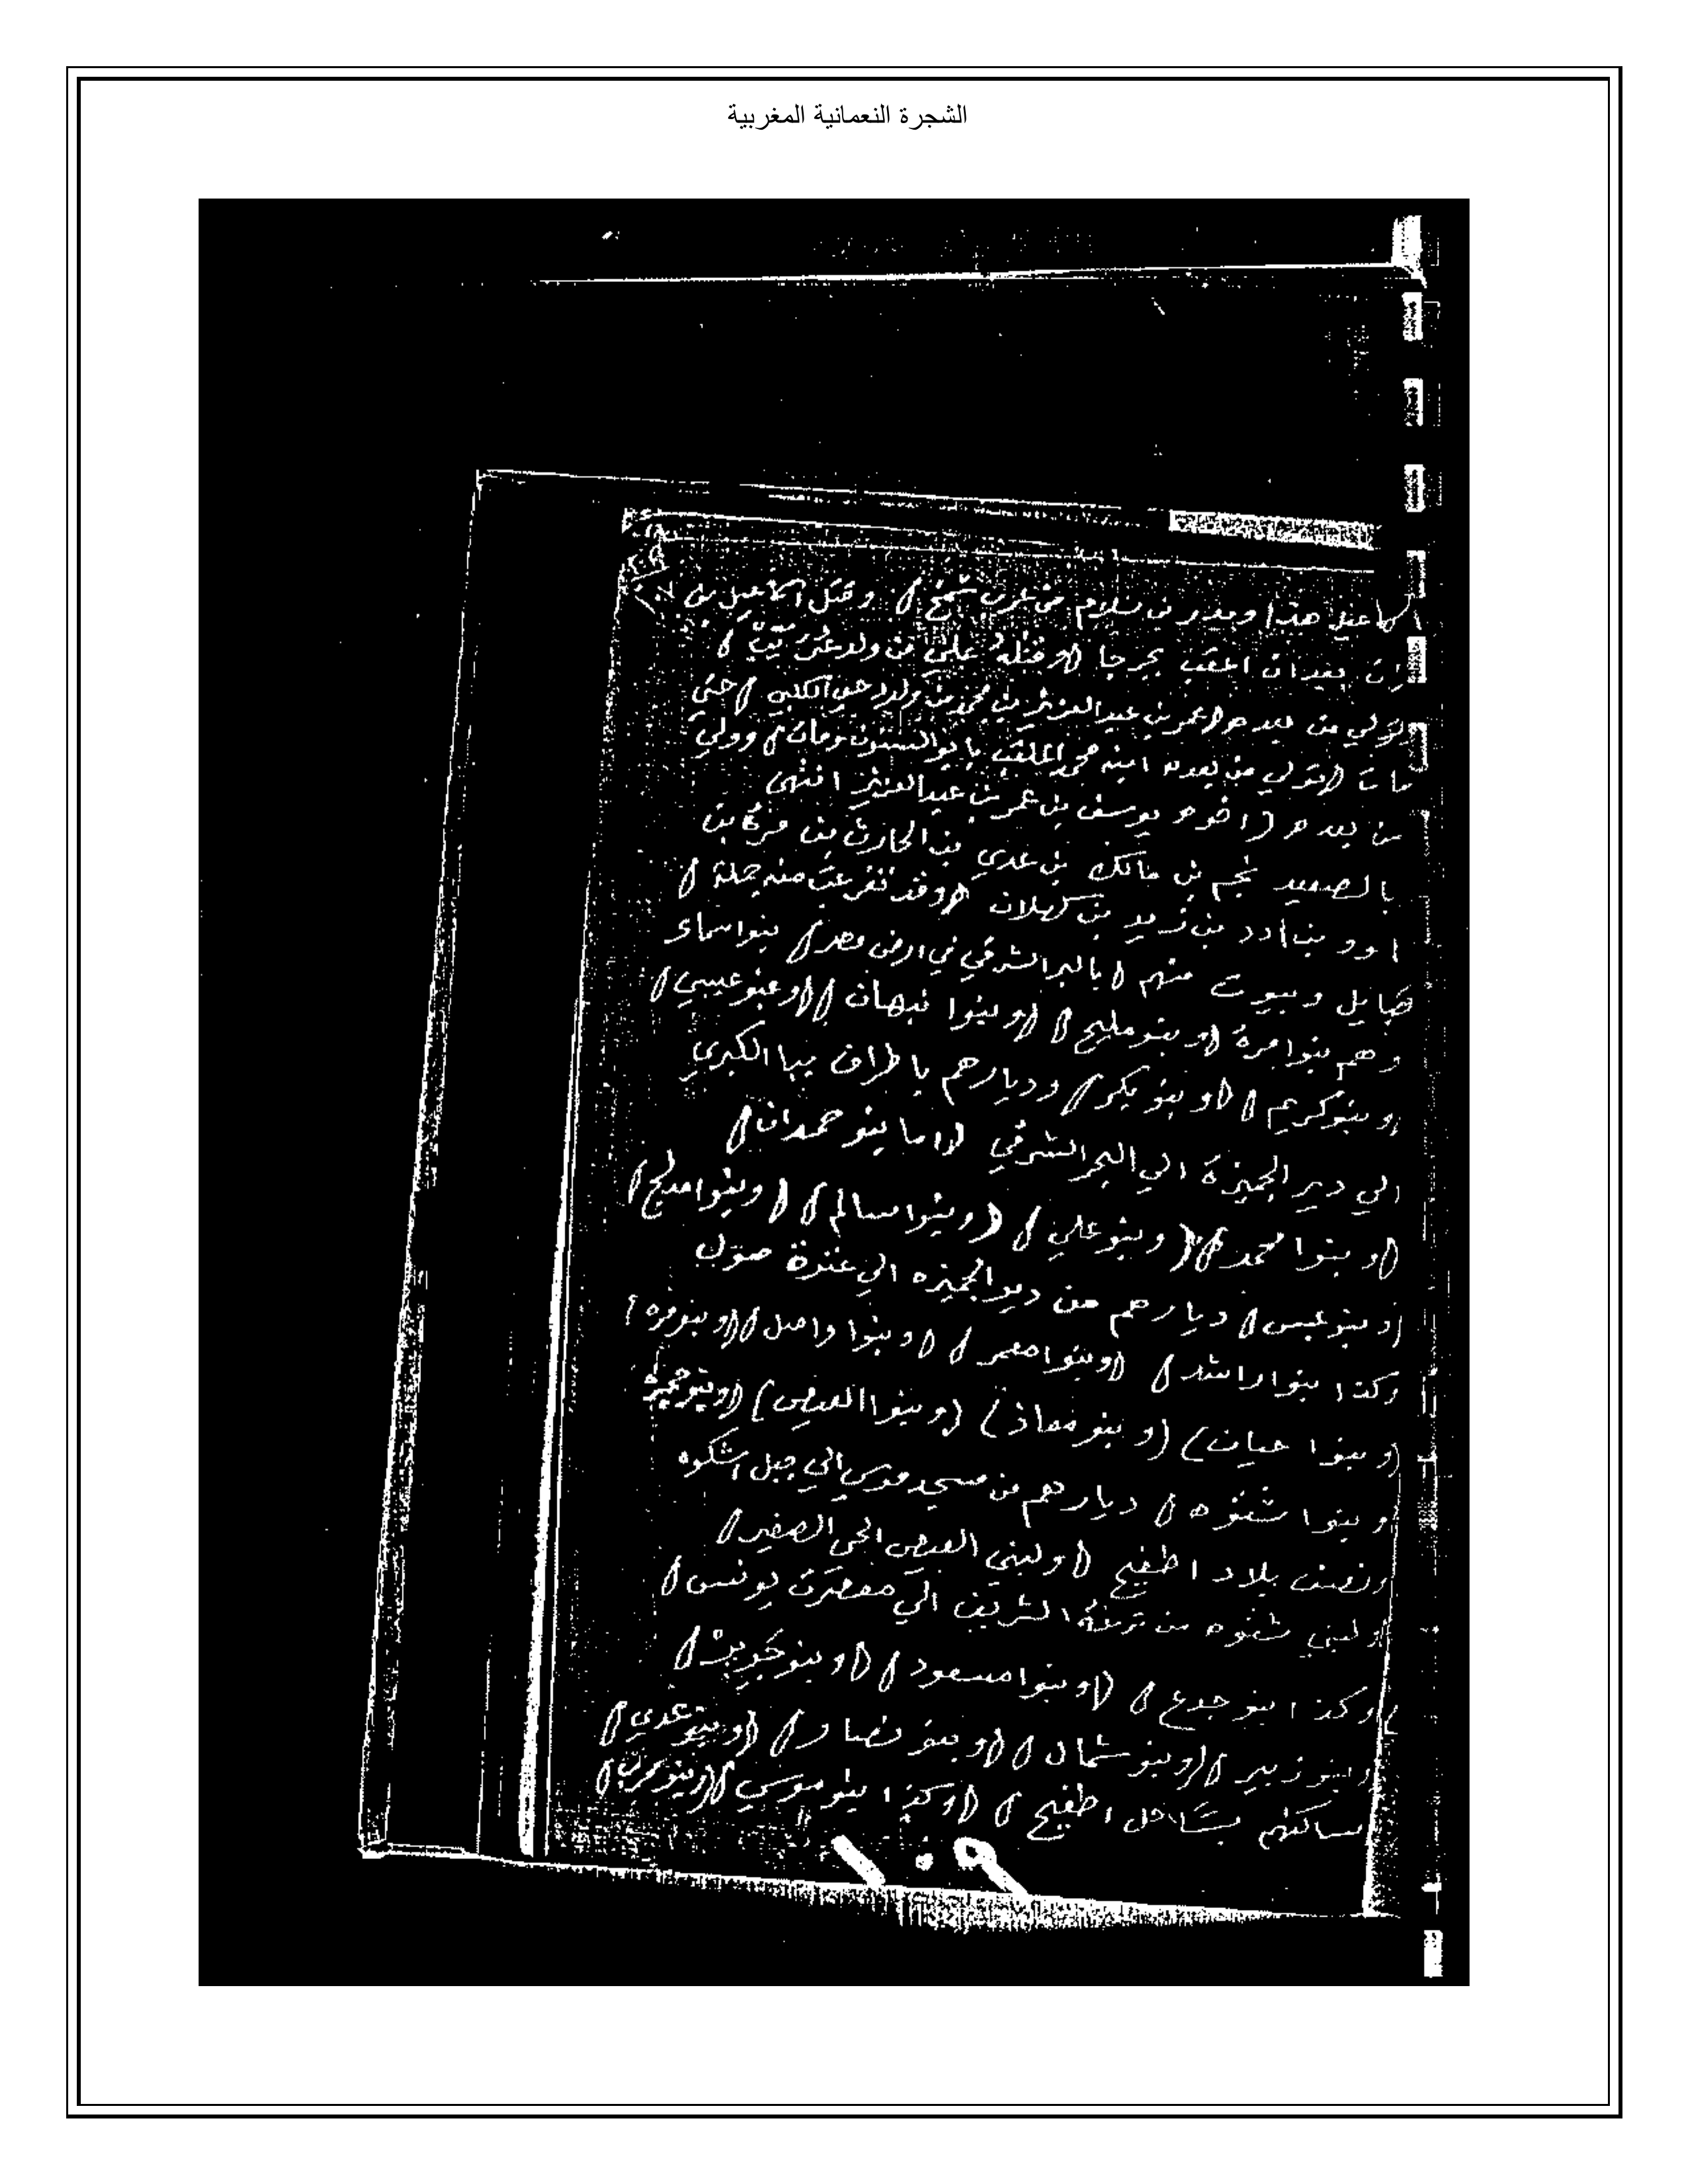 الشجرة النعمانية المغربية
اسماعيل هذا وبدر بن سلام من عرب وقتل اسماعيل بن
بعد ان اعقب بجرجا (وقتله علي من ولد
تولي من بعده (عمر بن عبد العزيز بن محمد من ولد حتى
مات (تولي من بعده ابنه محمد الملقب بابو السنون زمان) وولي
من بعده (اخوه يوسف بن عمر بن عبد العزيز انتهى
بالصعيد بن مالك بن عدي بن الحارث بن مرة بن
ادد بن زيد بن كهلان (وقد تفرعت منه جملة)
قبايل وبيوت منهم (بالبر الشرقي في ارض مصر) بنوا سماك
وهم بنوا مرة (وبنو مليح) (وبنوا نبهان) (وبنو عبسي)
وبنو كريم) (وبنو بكر) وديارهم باطراف ببا الكبري
الي دير الجميزة الي البحر الشرقي (واما بنو حمدان)
(وبنوا محمد) (وبنو علي) (وبنوا سالم) (وبنوا مدلج)
(وبنو عبس) ديارهم من دير الجميزه الي صول
وكذا بنوا راشد) (وبنوا معمر) (وبنوا واصل) (وبنو مره)
(وبنوا حبان) (وبنو معاذ) (وبنوا البيض) (وبنو حجرة
وبنوا شنوه) ديارهم من مسجد موسي الي جبل اشكره
ونصف بلاد اطفيح (ولبني البيض الحي الصغير)
ولبني شنوه من ترعة الشريف الي معصرة يونس)
وكذا بنو جدع) (وبنوا مسعود) (وبنو
وبنو زبير) (وبنو شمال) (وبنو نصار) (وبنو عدي)
مساكنهم بساحل اطفيح) (وكذا بنو موسي) (وبنو محرب)
١٠٩